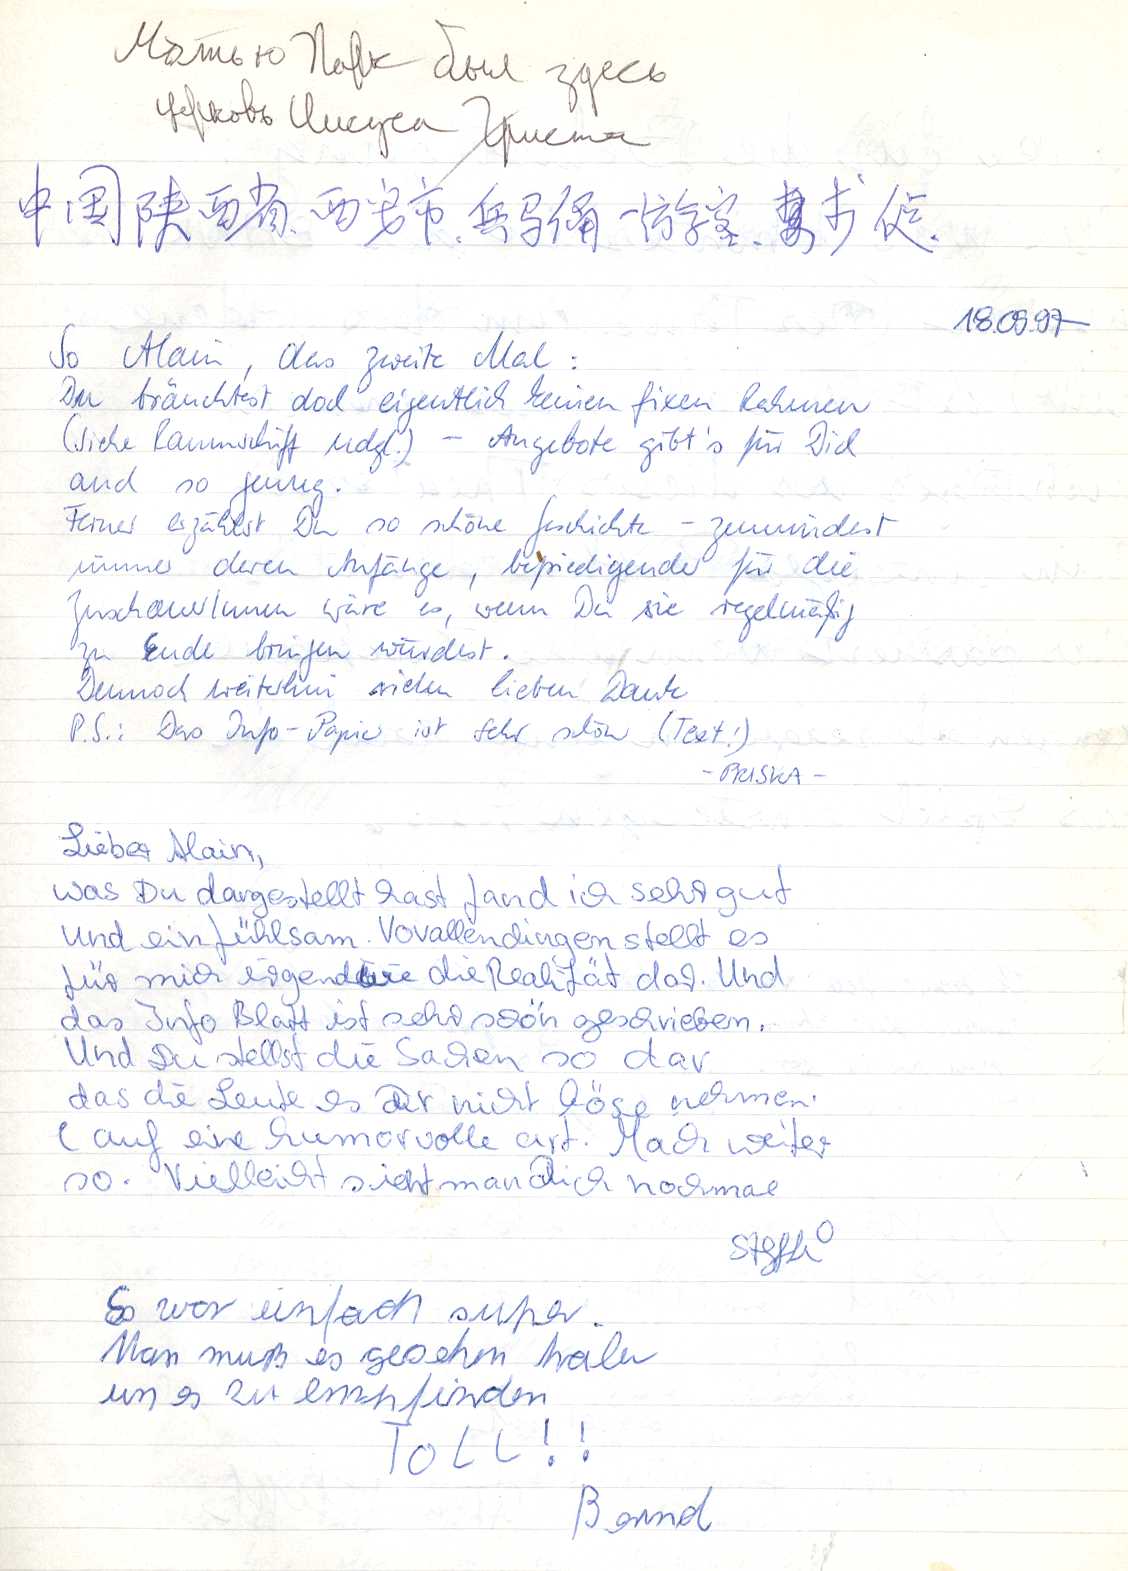 Мэтью Парк был здесь
церковь Иисуса Христа
中国陕西省.西安市.兵马俑一仿字室.
18.09.97
So Alain, das zweite Mal:
Du bräuchtest doch eigentlich keinen fixen Rahmen
(siehe Raumschiff udgl.) – Angebote gibt's für Dich
auch so genug.
Ferner erzählst Du so schöne Geschichte – zumindest
immer deren Anfänge, befriedigender für die
ZuschauerInnen wäre es, wenn Du sie regelmäßig
zu Ende bringen würdest.
Dennoch weiterhin vielen lieben Dank
P.S.: Das Info-Papier ist sehr schön (Text!)
- PRISKA -
Lieber Alain,
was Du dargestellt hast fand ich sehr gut
und einfühlsam. Vovallendingen stellt es
für mich irgendwie die Realität dar. Und
das Info Blatt ist sehr schön geschrieben.
Und Du stellst die Sachen so dar
das die Leute es Dir nicht böse nehmen.
(auf eine humorvolle art. Mach weiter
so. Vielleicht sieht man dich nochmal
Steffi
Es war einfach super.
Man muß es gesehen haben
um es zu empfinden
TOLL!!
Bernd